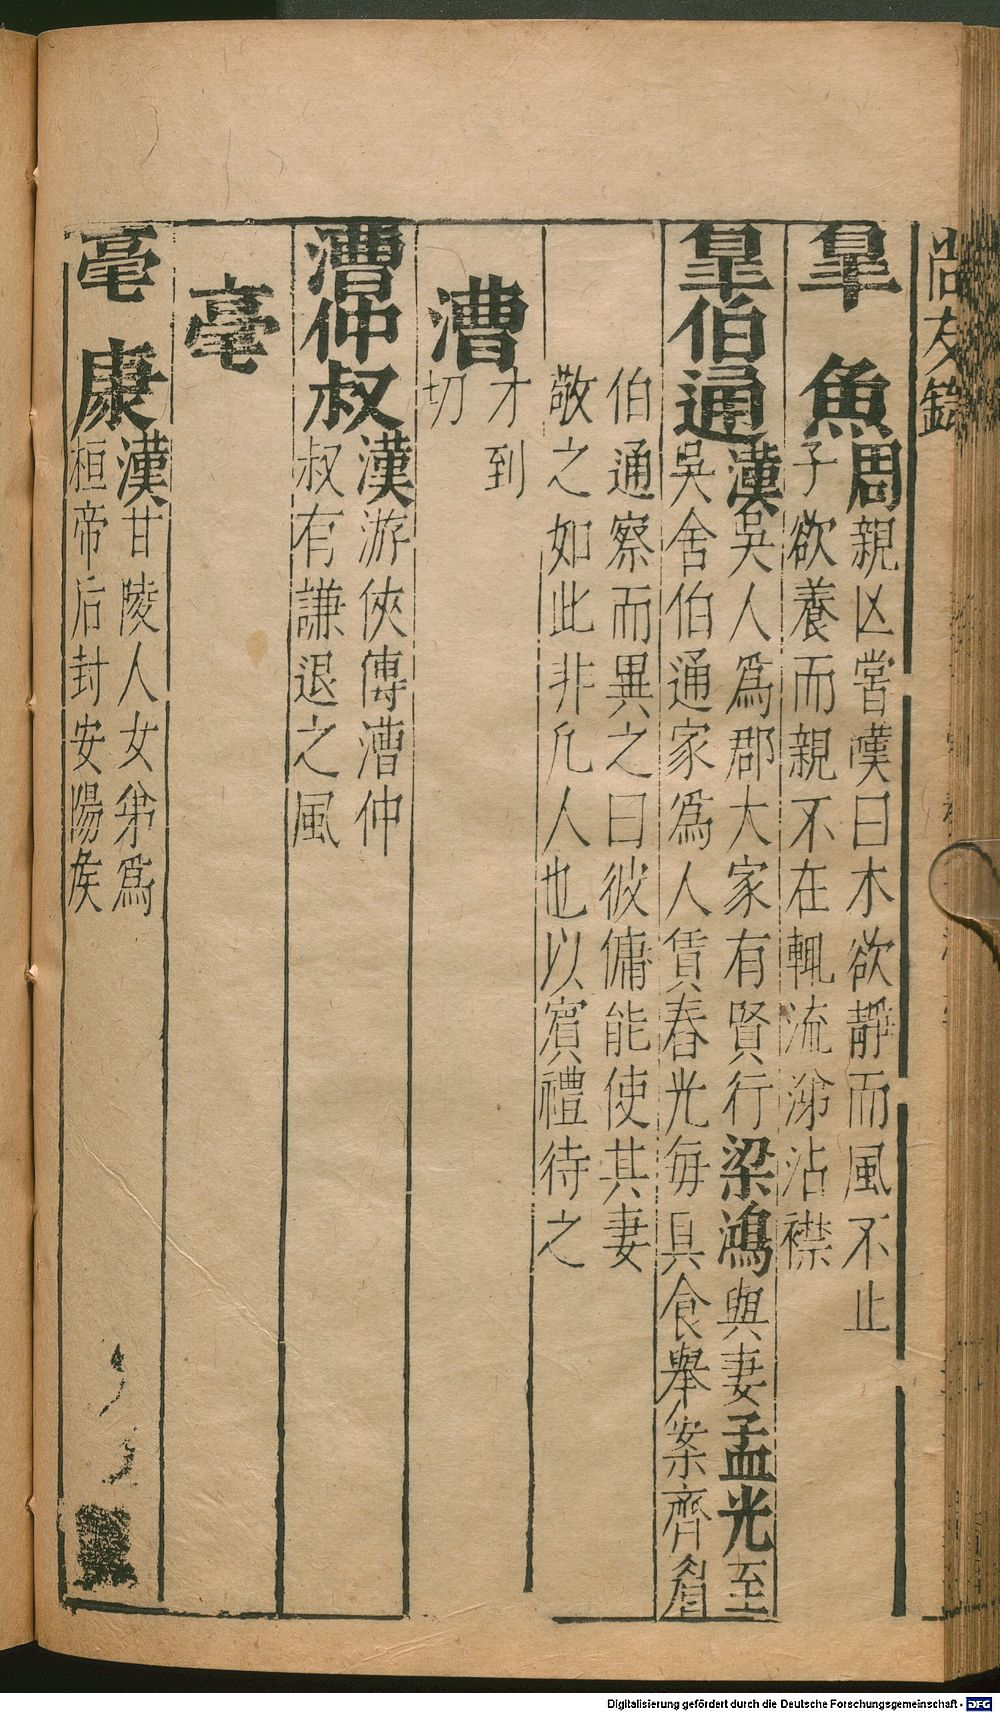 尚友錄
皐魚
周親凶嘗嘆曰木欲靜而風不止
子欲養而親不在輒流涕沾襟
皐伯通
漢吳人爲郡大家有賢行梁鴻與妻孟光至
吳舍伯通家爲人賃舂光每具食舉案齊眉
伯通察而異之曰彼傭能使其妻
敬之如此非凡人也以賓禮待之
漕
才到
切
漕仲叔
漢游俠傳漕仲
叔有謙退之風
亳
亳康
漢甘陵人女弟爲
桓帝后封安陽矦
Digitalisierung gefördert durch die Deutsche Forschungsgemeinschaft - DFG